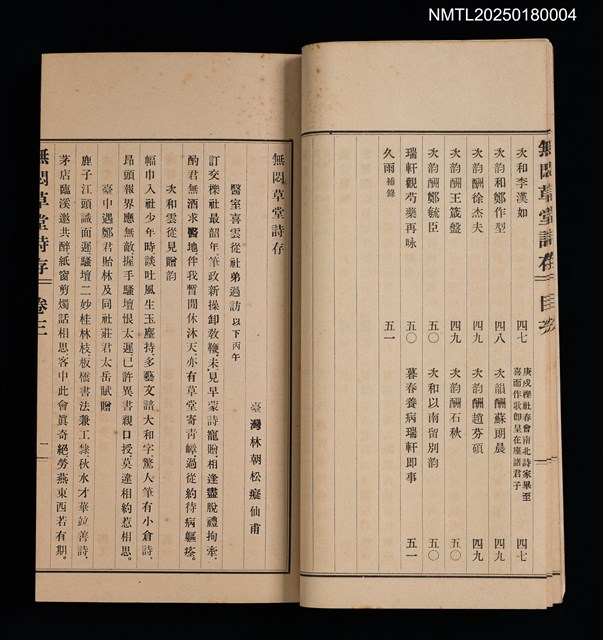 NMTL20250180004
無悶草堂詩存 目次
次和李漢如 四七
庚戌櫟社春會南北詩家畢至
喜而作歌即呈在座諸君子 四七
次韵和鄭作型 四八
次韻酬蘇朗晨 四九
次韵酬徐杰夫 四九
次韵酬趙芬碩 四九
次韵酬王箴盤 四九
次韵酬石秋 五〇
次韵酬鄭毓臣 五〇
次和以南留別韵 五〇
瑞軒觀芍藥再咏 五〇
暮春養病瑞軒即事 五一
久雨補錄 五一
無悶草堂詩存
臺灣林朝崧癡仙甫
醫室喜雲從社弟過訪以下丙午
訂交櫟社最韶年筆政新操卸敎鞭未見早蒙詩寵贈相逢盡脫禮拘牽
酌君無酒求醫地伴我暫閒休沐天亦有草堂寄靑嶂過從約待病軀痊
次和雲從見贈韵
幅巾入社少年時談吐風生玉麈持多藝文諳大和字驚人筆有小倉詩
昂頭報界應無敵握手騷壇恨太遲已許異書親口授莫違相約惹相思
臺中遇鄭君貽林及同社莊君太岳賦贈
鹿子江頭識面遲騷壇二妙桂林枝板橋書法兼工隸秋水才華竝善詩
茅店臨溪邀共醉紙窗剪燭話相思客中此會眞奇絕勞燕東西若有期
無悶草堂詩存 卷三 一